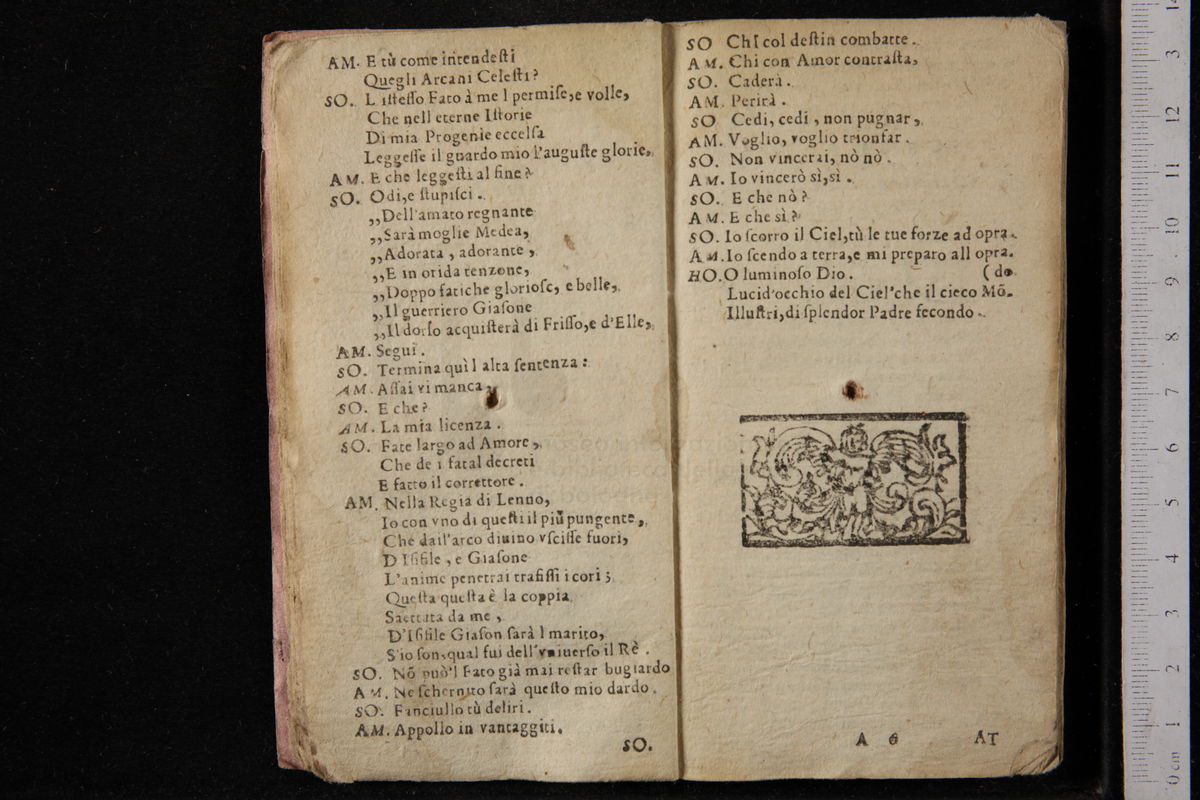 AM. E tù come intendesti
Quegli Arcani Celesti?
SO. L istesso Fato à me l permise,e volle,
Che nell eterne Istorie
Di mia Progenie eccelsa
Leggesse il guardo mio l'auguste glorie,
AM. E che leggesti al fine?
SO. Odi,e stupisci.
,,Dell'amato regnante
,,Sarà moglie Medea,
,,Adorata, adorante,
,,E in orida tenzone,
,,Doppo fatiche gloriose, e belle,
,,Il guerriero Giasone
,,Il dorso acquisterà di Frisso,e d'Elle,
AM. Segui.
SO. Termina quì l alta sentenza:
AM. Assai vi manca
SO. E che?
AM. La mia licenza.
SO. Fate largo ad Amore,
Che de i fatal decreti
E fatto il correttore.
AM. Nella Regia di Lenno,
Io con vno di questi il più pungente,
Che dall'arco diuino vscisse fuori,
D Isifile, e Giasone
L'anime penetrai trafissi i cori;
Questa questa è la coppia
Saettata da me,
D'Isifile Giason sarà l marito,
S'io son,qual fui dell'vniuerso il Rè.
SO. Nõ può'l Fato già mai restar bugiardo
AM. Ne schernito sarà questo mio dardo.
SO. Fanciullo tù deliri.
AM. Appollo in vantaggiti.
SO.
SO Chi col destin combatte.
AM. Chi con Amor contrasta,
SO. Caderà.
AM. Perirà.
SO Cedi, cedi, non pugnar,
AM. Voglio, voglio trionfar.
SO. Non vincerai, nò nò.
AM. Io vincerò sì,sì.
SO. E che nò?
AM. E che sì?
SO. Io scorro il Ciel,tù le tue forze ad opra.
AM. Io scendo a terra,e mi preparo all opra.
HO. O luminoso Dio. (do
Lucid'occhio del Ciel'che il cieco Mõ-
Illustri,di splendor Padre fecondo.
A 6 AT
0 cm 1 2 3 4 5 6 7 8 9 10 11 12 13 14